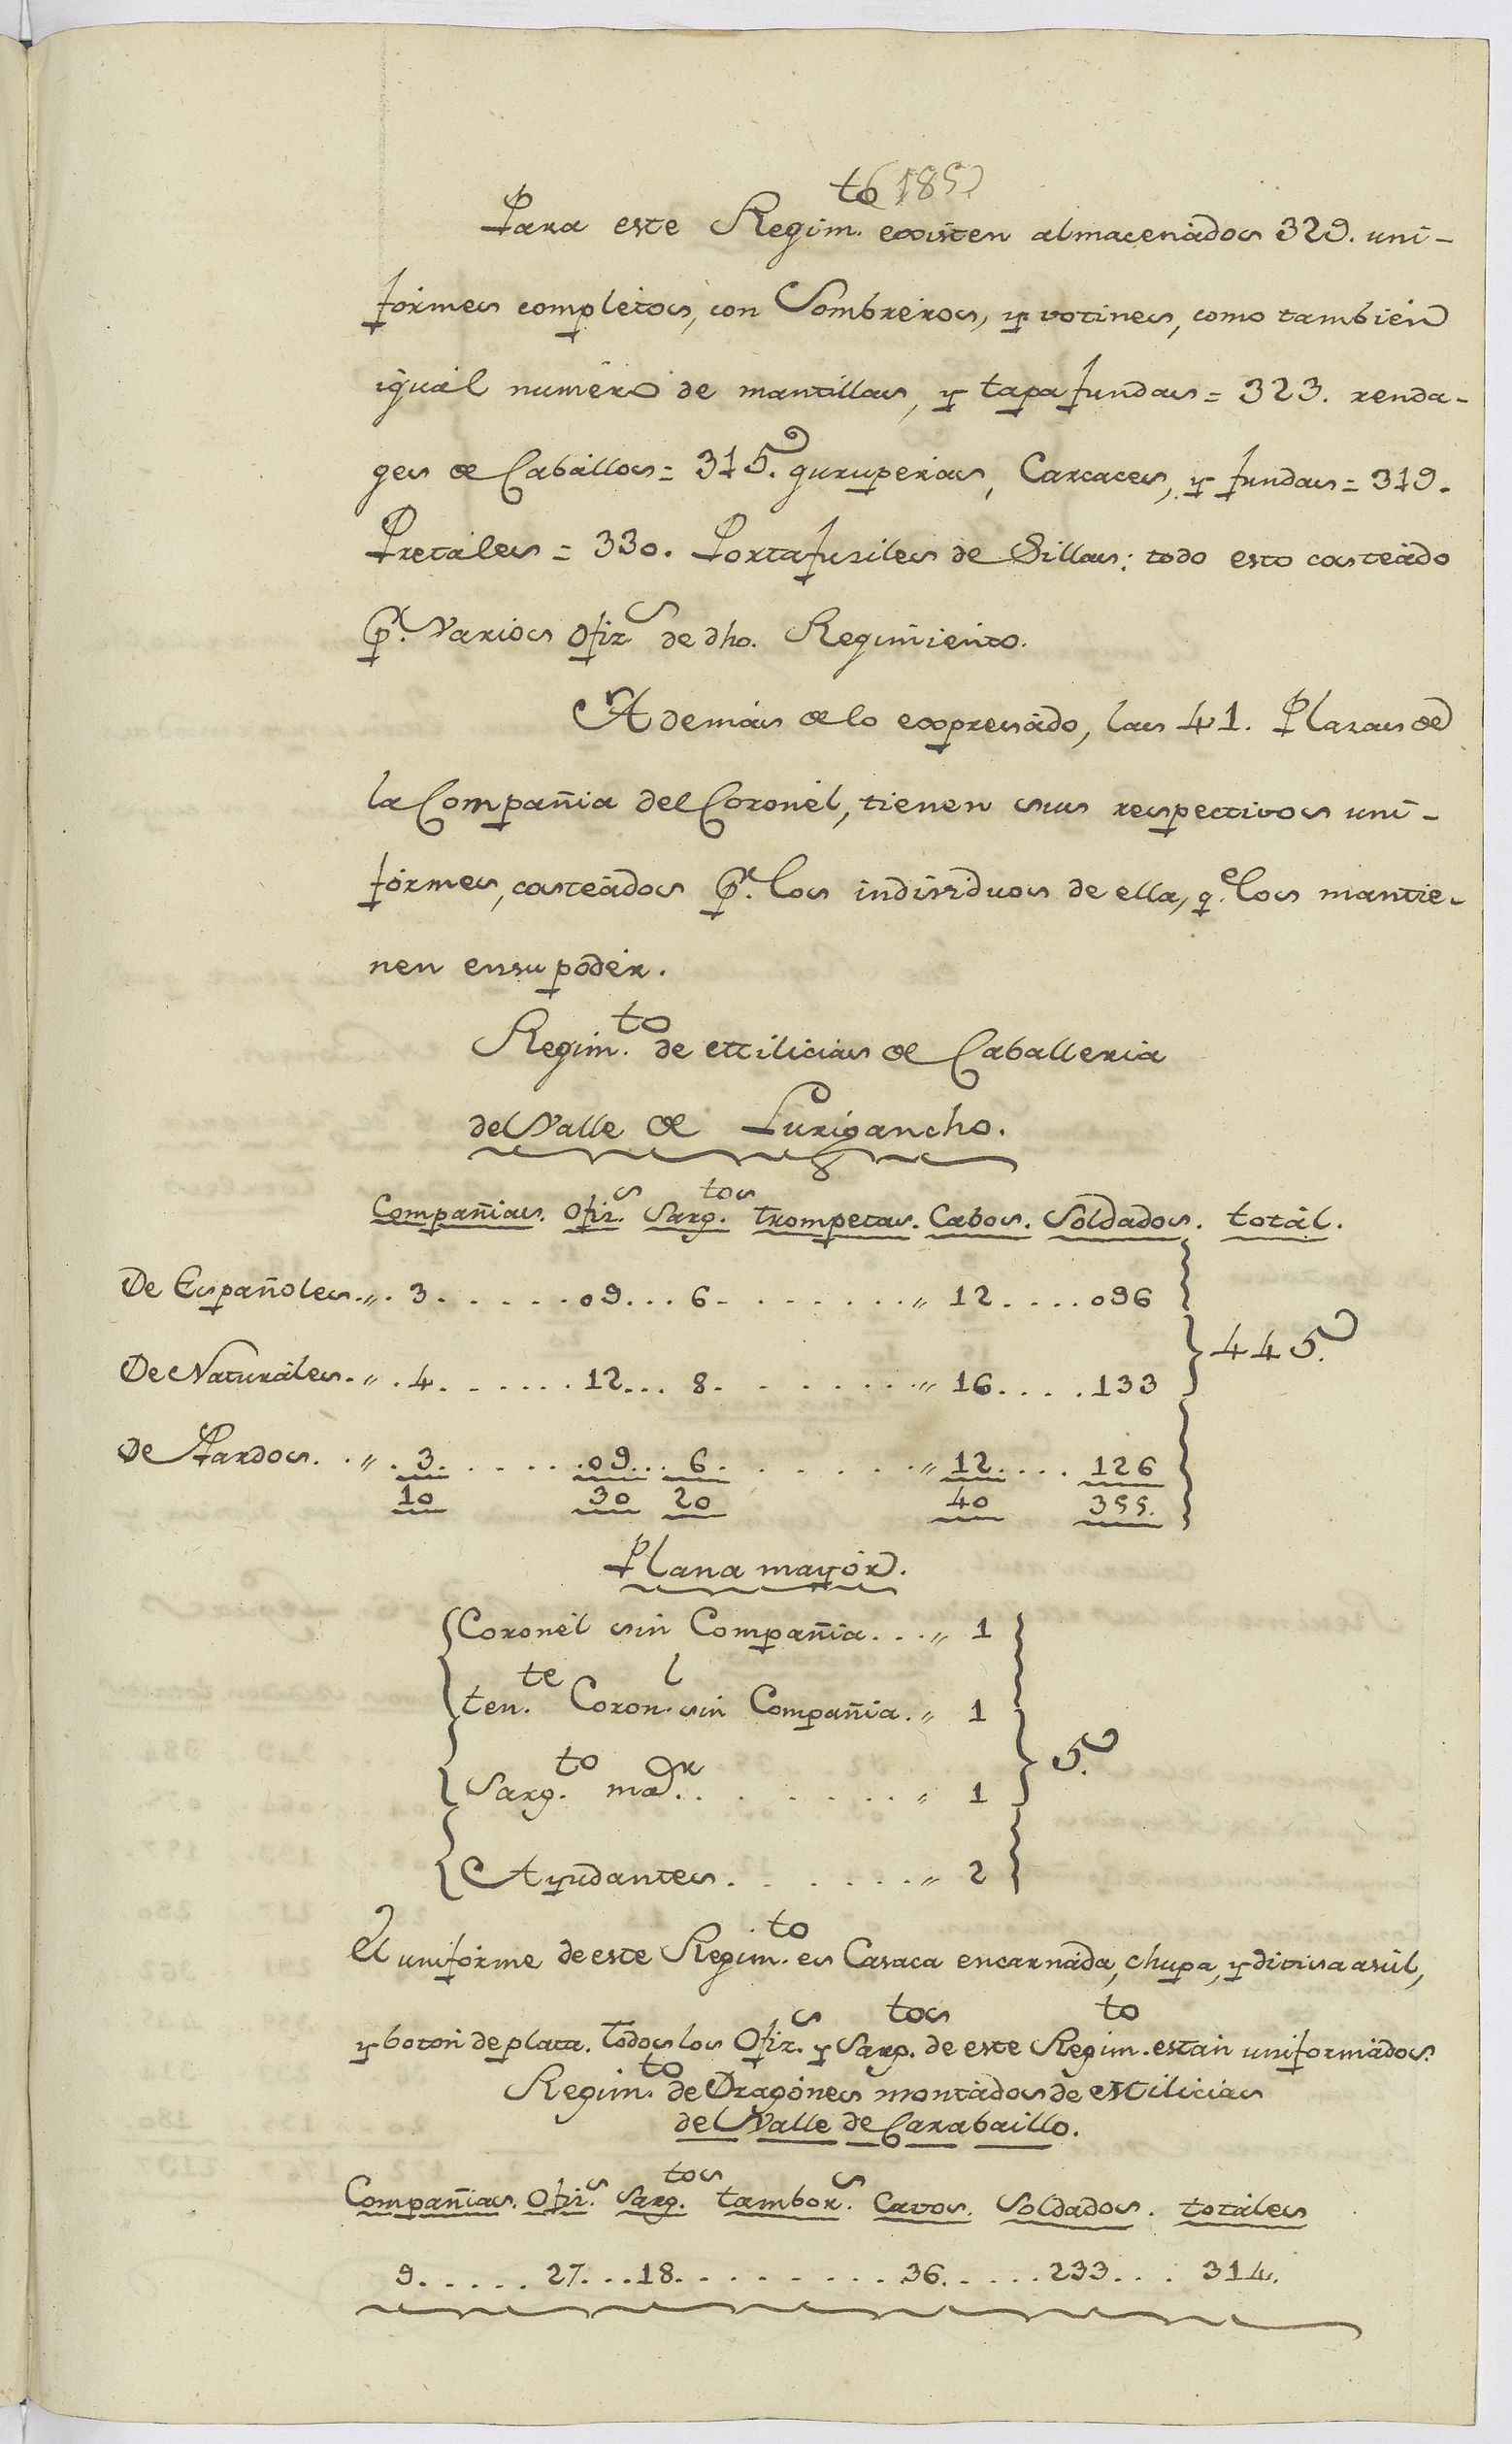 (185)
Para este Regim.to existen almacenados 329. uni-
formes completos, con Sombreros, y votines, como tambien
igual numero de mantillas, y tapa fundas = 323. renda-
ges de Caballos = 315. guruperias, Carcaces, y fundas = 319.
Pretales = 330. Portafusiles de Sillas: todo esto costeado
p.r Varios Ofiz.s de dho. Regimiento.
Ademas de lo expresado, las 41. Plazas de
la Compañia del Coronel, tienen sus respectivos uni-
formes, costeados p.r los individuos de ella, q.e los mantie-
nen ensu poder.
Regim.to de Milicias de Caballeria
del Valle de Lurigancho.
Compañias. Ofiz.s Sarg.tos Trompetas. Cabos. Soldados. total.
De Españoles.,,. 3. . . . . . 09. . . 6. . . . . . . ,, 12. . . . 096
445.
De Naturales. ,, . 4. . . . . . 12. . . 8. . . . . . . ,, 16. . . . 133
De Pardos. . ,, . 3. . . . . . 09. . . 6. . . . . . . ,, 12. . . . 126
10 30 20 40 355.
Plana mayor.
Coronel sin Compañia. . . ,, 1
ten.te Coron.l sin Compañia. ,, 1
5.
Sarg.to ma.r . . . . . . . ,, 1
Ayudantes. . . . . . . ,, 2
El uniforme de este Regim.to es Casaca encarnada, chupa, y divisa asul,
y boton de plata. Todos los Ofiz.s y Sarg.tos de este Regim.to estan uniformados.
Regim.to de Dragones montados de Milicias
del Valle de Carabaillo.
Compañias. Ofiz.s Sarg.tos tambor.s Cavos. Soldados. totales
9. . . . . 27. . . 18. . . . . . . . . 36. . . . . 233. . . 314.